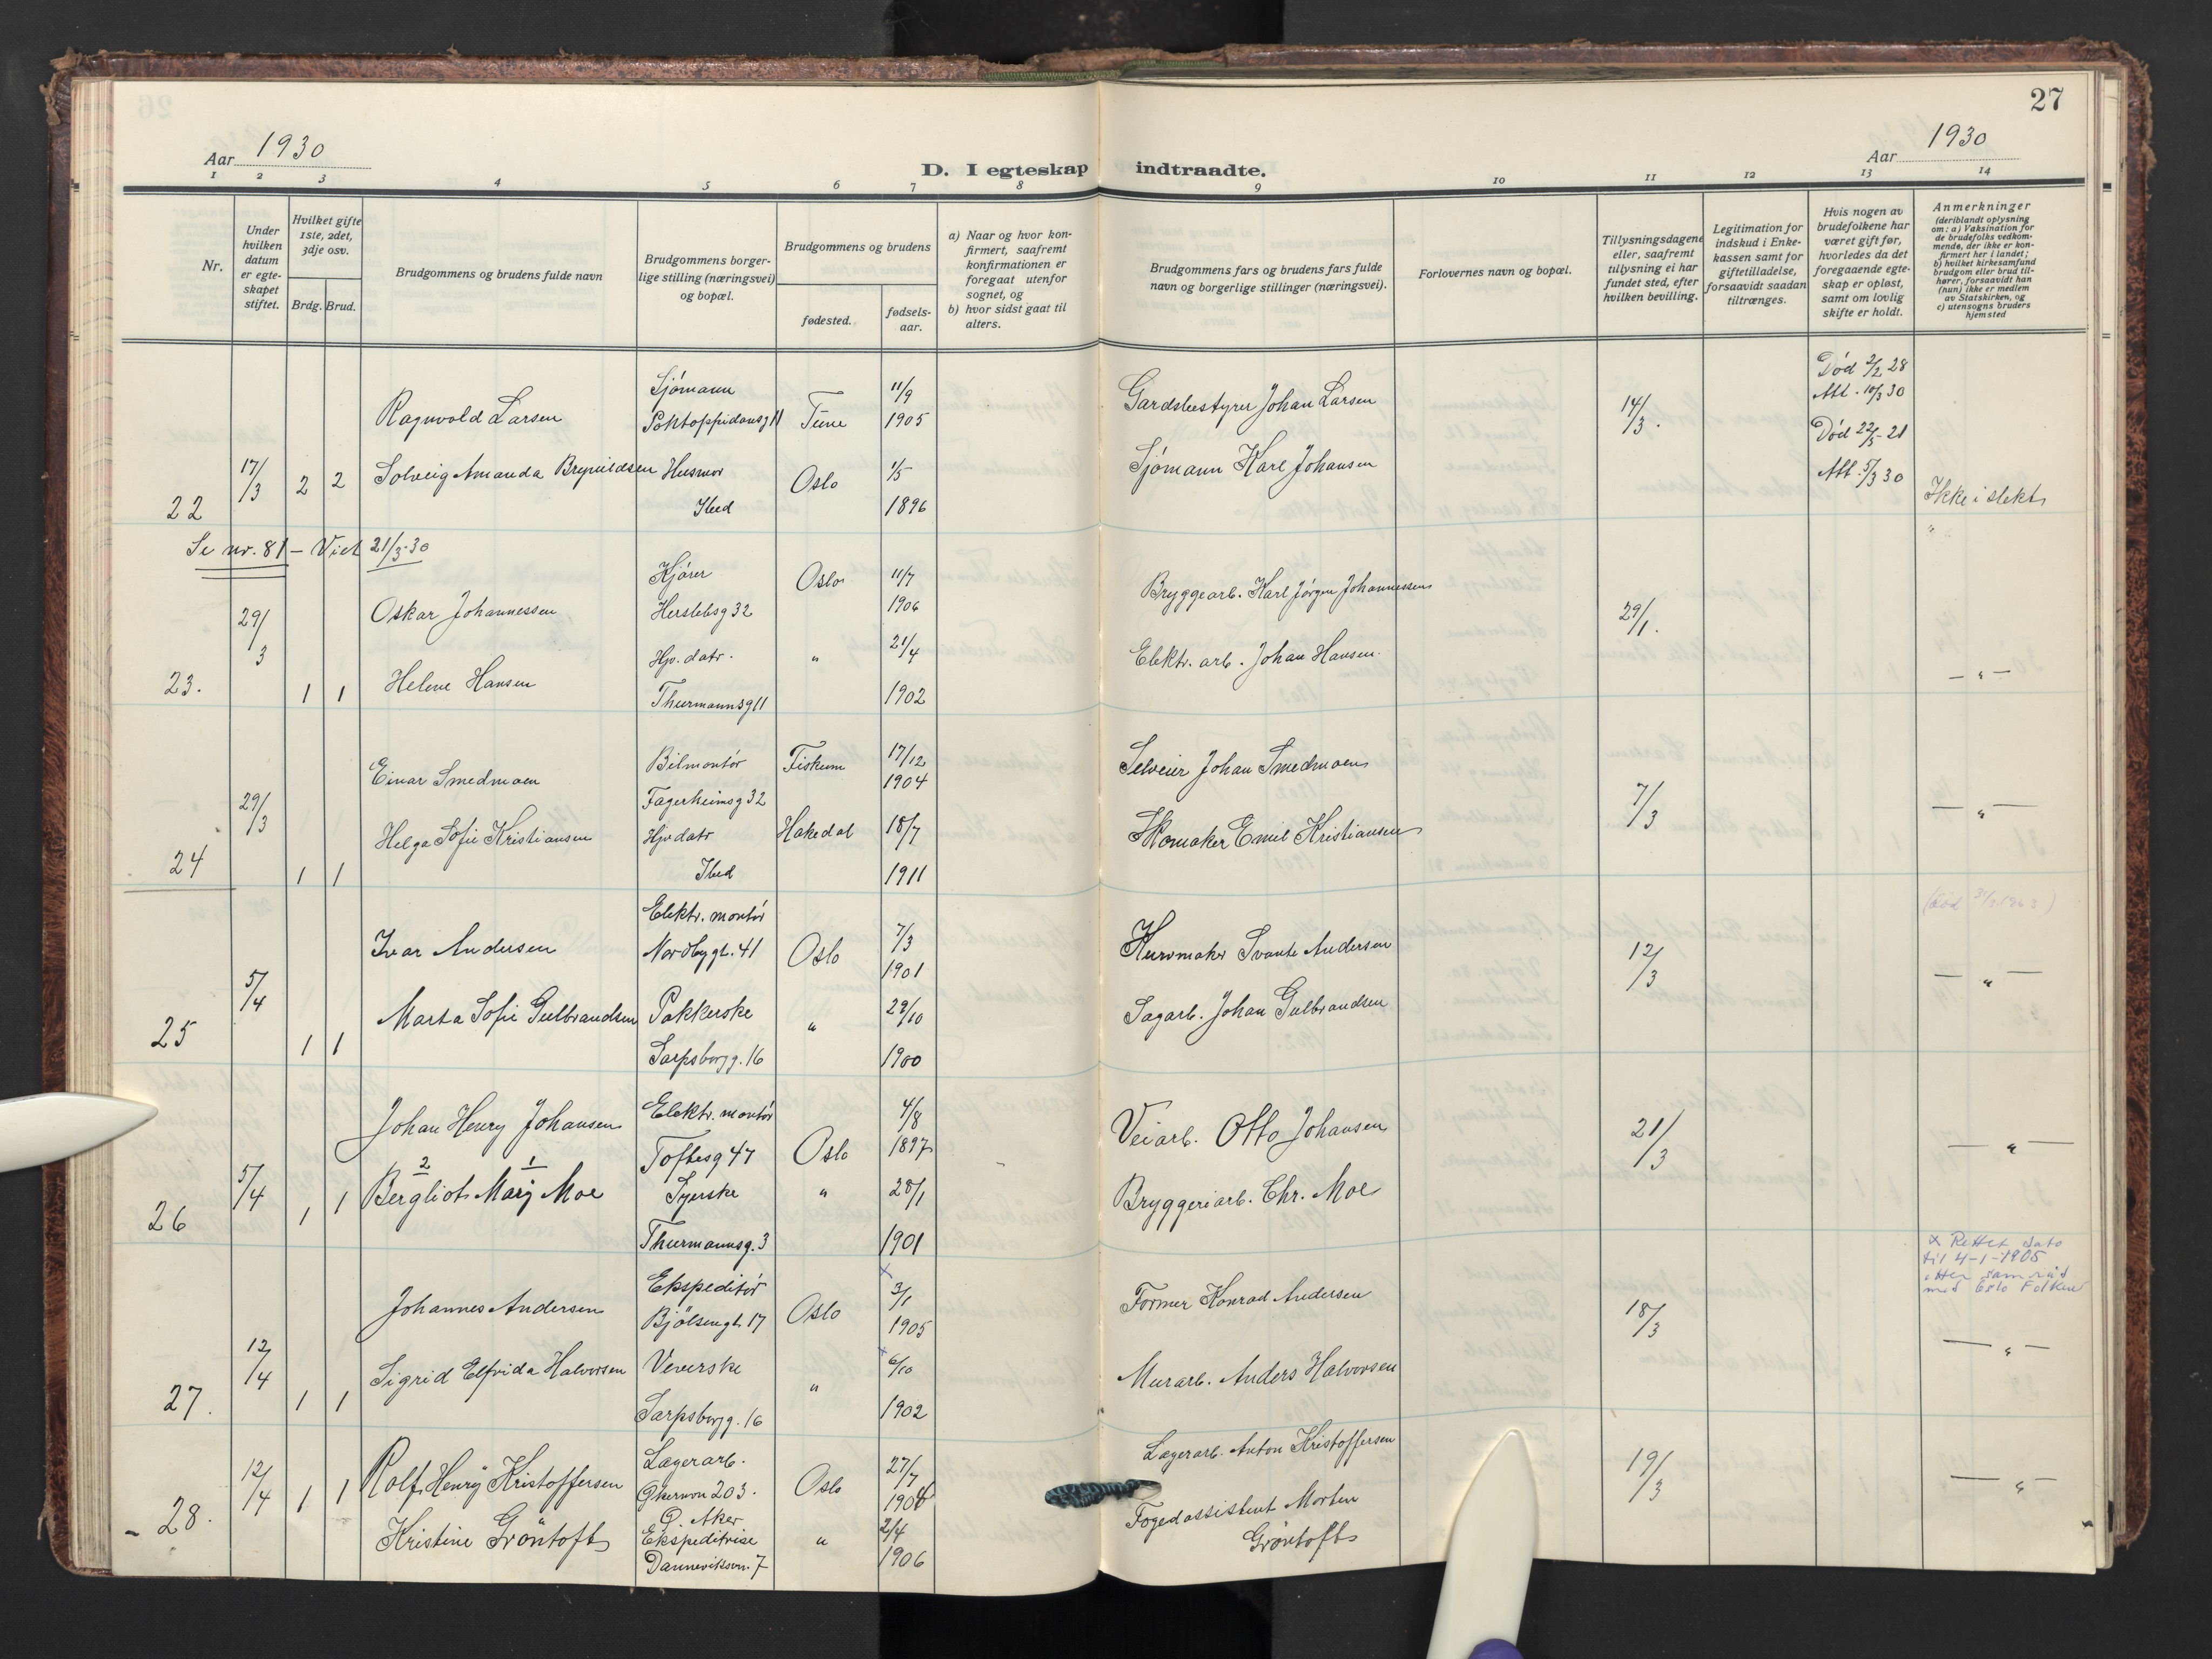 27
Aar 1930
Aar 1930
D. I egteskap indtraadte.
1 2 3 4 5 6 7 8 9 10 11 12 13 14
Nr.
Under hvilken datum er egteskapet stiftet.
Hvilket gifte 1ste, 2det, 3dje osv.
Brdg. Brud.
Brudgommens og brudens fulde navn
Brudgommens borgerlige stilling (næringsvei) og bopæl.
Brudgommens og brudens
fødested.
fødselsaar.
a) Naar og hvor konfirmert, saafremt konfirmationen er foregaat utenfor sognet, og
b) hvor sidst gaat til alters.
Brudgommens fars og brudens fars fulde navn og borgerlige stillinger (næringsvei).
Forlovernes navn og bopæl.
Tillysningsdagene eller, saafremt tillysning ei har fundet sted, efter hvilken bevilling.
Legitimation for indskud i Enkekassen samt for giftetilladelse, forsaavidt saadan tiltrænges.
Hvis nogen av brudefolkene har været gift før, hvorledes da det foregaaende egteskap er opløst, samt om lovlig skifte er holdt.
Anmerkninger
(deriblandt oplysning om: a) Vaksination for de brudefolks vedkommende, der ikke er konfirmert her i landet; b) hvilket kirkesamfund brudgom eller brud tilhører, forsaavidt han (hun) ikke er medlem av Statskirken, og c) utensogns bruders hjemsted
22
17/3
2 2
Ragnvold Larsen
Sjømann
Pontoppidansg 11
Tune
11/9
1905
Gardsbestyrer Johan Larsen
14/3.
Død 2/2 28
Att. 10/3 30
Solveig Amanda Brynildsen
Husmor
Ibed
Oslo
1/5
1896
Sjømann Karl Johansen
Død 22/5-21
Att. 5/3 30
Ikke i slekt
Se nr. 81 – Viet 21/3-30
23.
29/3
1 1
Oskar Johannessen
Kjører
Herslebsg 32
Oslo
11/7
1906
Bryggearb. Karl Jørgen Johannessen
29/1.
Helene Hansen
Hjv. datr.
Thurmannsg 11
"
21/4
1902
Elektr. arb. Johan Hansen.
— " —
24
29/3
1 1
Einar Smedmoen
Bilmontør
Fagerheimsg 32
Fiskum
17/12
1904
Selveier Johan Smedmoen
7/3
— " —
Helga Sofie Kristiansen
Hjv datr
Ibed
Hakedal
18/7
1911
Skomaker Emil Kristiansen
25
5/4
1 1
Ivar Andersen
Elektr. montør
Nordbygt. 41
Oslo
7/3
1901
Kurvmaker Svante Andersen
12/3
— " —
Marta Sofie Gulbrandsen
Pakkerske
Sarpsborgg. 16
"
29/10
1900
Sagarb. Johan Gulbrandsen
26
5/4
1 1
Johan Henry Johansen
Elektr. montør
Toftesg 47
Oslo
4/8
1897
Veiarb. Otto Johansen
21/3
— " —
2 1
Bergliot Mary Moe
Syerske
Thurmannsg. 3
"
28/1
1901
Bryggeriarb. Chr. Moe
x Rettet dato
til 4-1-1905
etter samråd
med Oslo Folker
27.
12/4
1 1
Johannes Andersen
Ekspeditør
Bjølsengt. 17
Oslo
x
3/1
1905
Former Konrad Andersen
18/3
— " —
Sigrid Elfrida Halvorsen
Veverske
Sarpsborgg. 16
"
x
6/10
1902
Murarb. Anders Halvorsen
28.
12/4
1 1
Rolf Henry Kristoffersen
Lagerarb.
Økernvn 203.
Ø. Aker
Oslo
27/7
1904
Lagerarb. Anton Kristoffersen
19/3
— " —
Kristine Grøntoft
Ekspeditrise
Danneviksvn. 7
"
2/4
1906
Fogedassistent Morten
Grøntoft